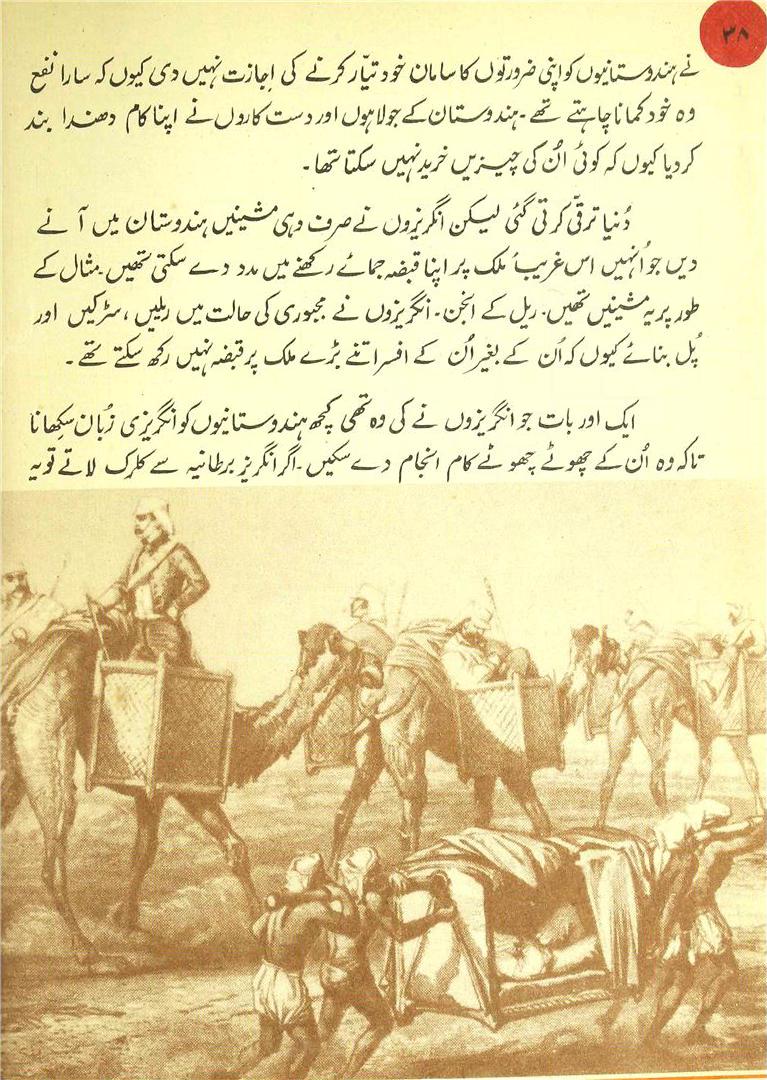 ۳۸
نے ہندوستانیوں کو اپنی ضرورتوں کا سامان خود تیّار کرنے کی اِجازت نہیں دی کیوں کہ سارا نفع
وہ خود کمانا چاہتے تھے۔ ہندوستان کے جولاہوں اور دست کاروں نے اپنا کام دھندا بند
کر دیا کیوں کہ کوئی اُن کی چیزیں خرید نہیں سکتا تھا۔
دُنیا ترقّی کرتی گئی لیکن انگریزوں نے صرف وہی مشینیں ہندوستان میں آنے
دیں جو اُنہیں اس غریب ملک پر اپنا قبضہ جمائے رکھنے میں مدد دے سکتی تھیں۔ مثال کے
طور پر یہ مشینیں تھیں۔ ریل کے انجن۔ انگریزوں نے مجبوری کی حالت میں ریلیں، سڑکیں اور
پُل بنائے کیوں کہ اُن کے بغیر اُن کے افسر اتنے بڑے ملک پر قبضہ نہیں رکھ سکتے تھے۔
ایک اور بات جو انگریزوں نے کی وہ تھی کچھ ہندوستانیوں کو انگریزی زُبان سِکھانا
تاکہ وہ اُن کے چھوٹے چھوٹے کام انجام دے سکیں۔ اگر انگریز برطانیہ سے کلرک لاتے تو یہ